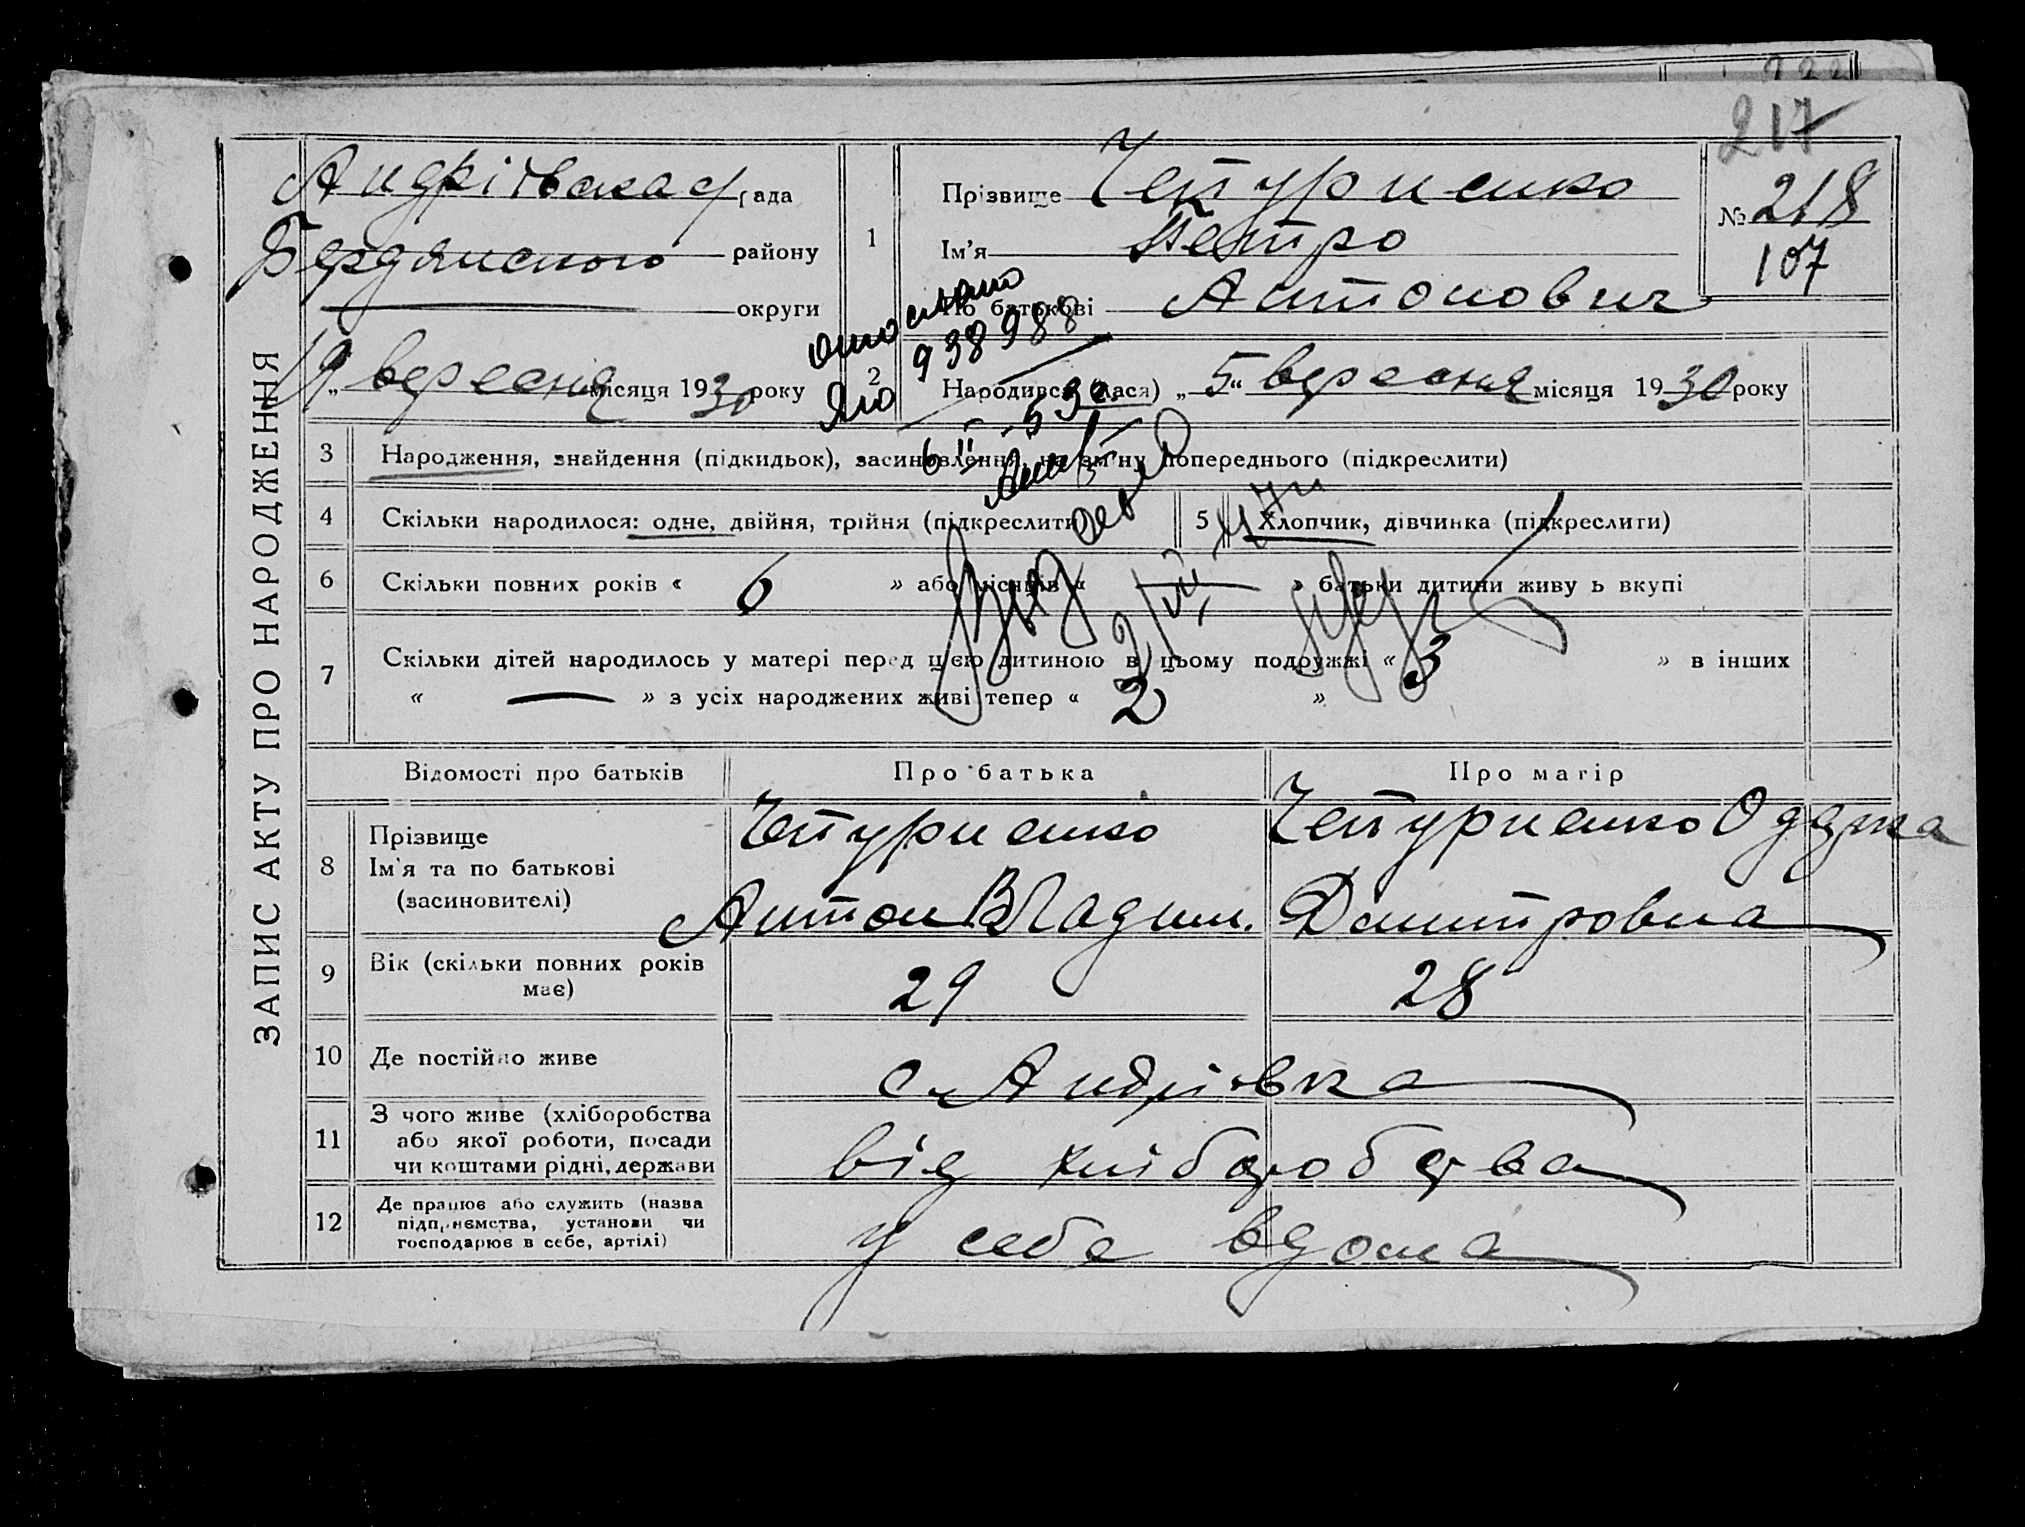 217
Андріївська с/рада
Бердянського району
округи
19 „ вересня місяця 1930 року
ЗАПИС АКТУ ПРО НАРОДЖЕННЯ
1
Прізвище Четуриенко
Ім'я Петро
По батькові Антонович
№ 218
107
2
Народився (лася) „5“ вересня місяця 1930 року
938988
3 Народження, знайдення (підкидьок), засиновлення, на зм'ну попереднього (підкреслити)
4 Скільки народилося: одне, двійня, трійня (підкреслити)
5 Хлопчик, дівчинка (підкреслити)
6 Скільки повних років « 6 » або місяців « » батьки дитини живуть вкупі
7 Скільки дітей народилось у матері перед цією дитиною в цьому подружжі « 3 » в інших
« — » з усіх народжених живі тепер « 2 »
Відомості про батьків Про батька Про матір
8 Прізвище
Ім'я та по батькові
(засиновителі)
Четуриенко
Антон Владим.
Четуриенко
Дмитровна
9 Вік (скільки повних років
має)
29 28
10 Де постійно живе с. Андрівка
11 З чого живе (хліборобства
або якої роботи, посади
чи коштами рідні, держави
від хліборобства
12 Де працює або служить (назва
підприємства, установи чи
господарює в себе, артілі)
у себе вдома